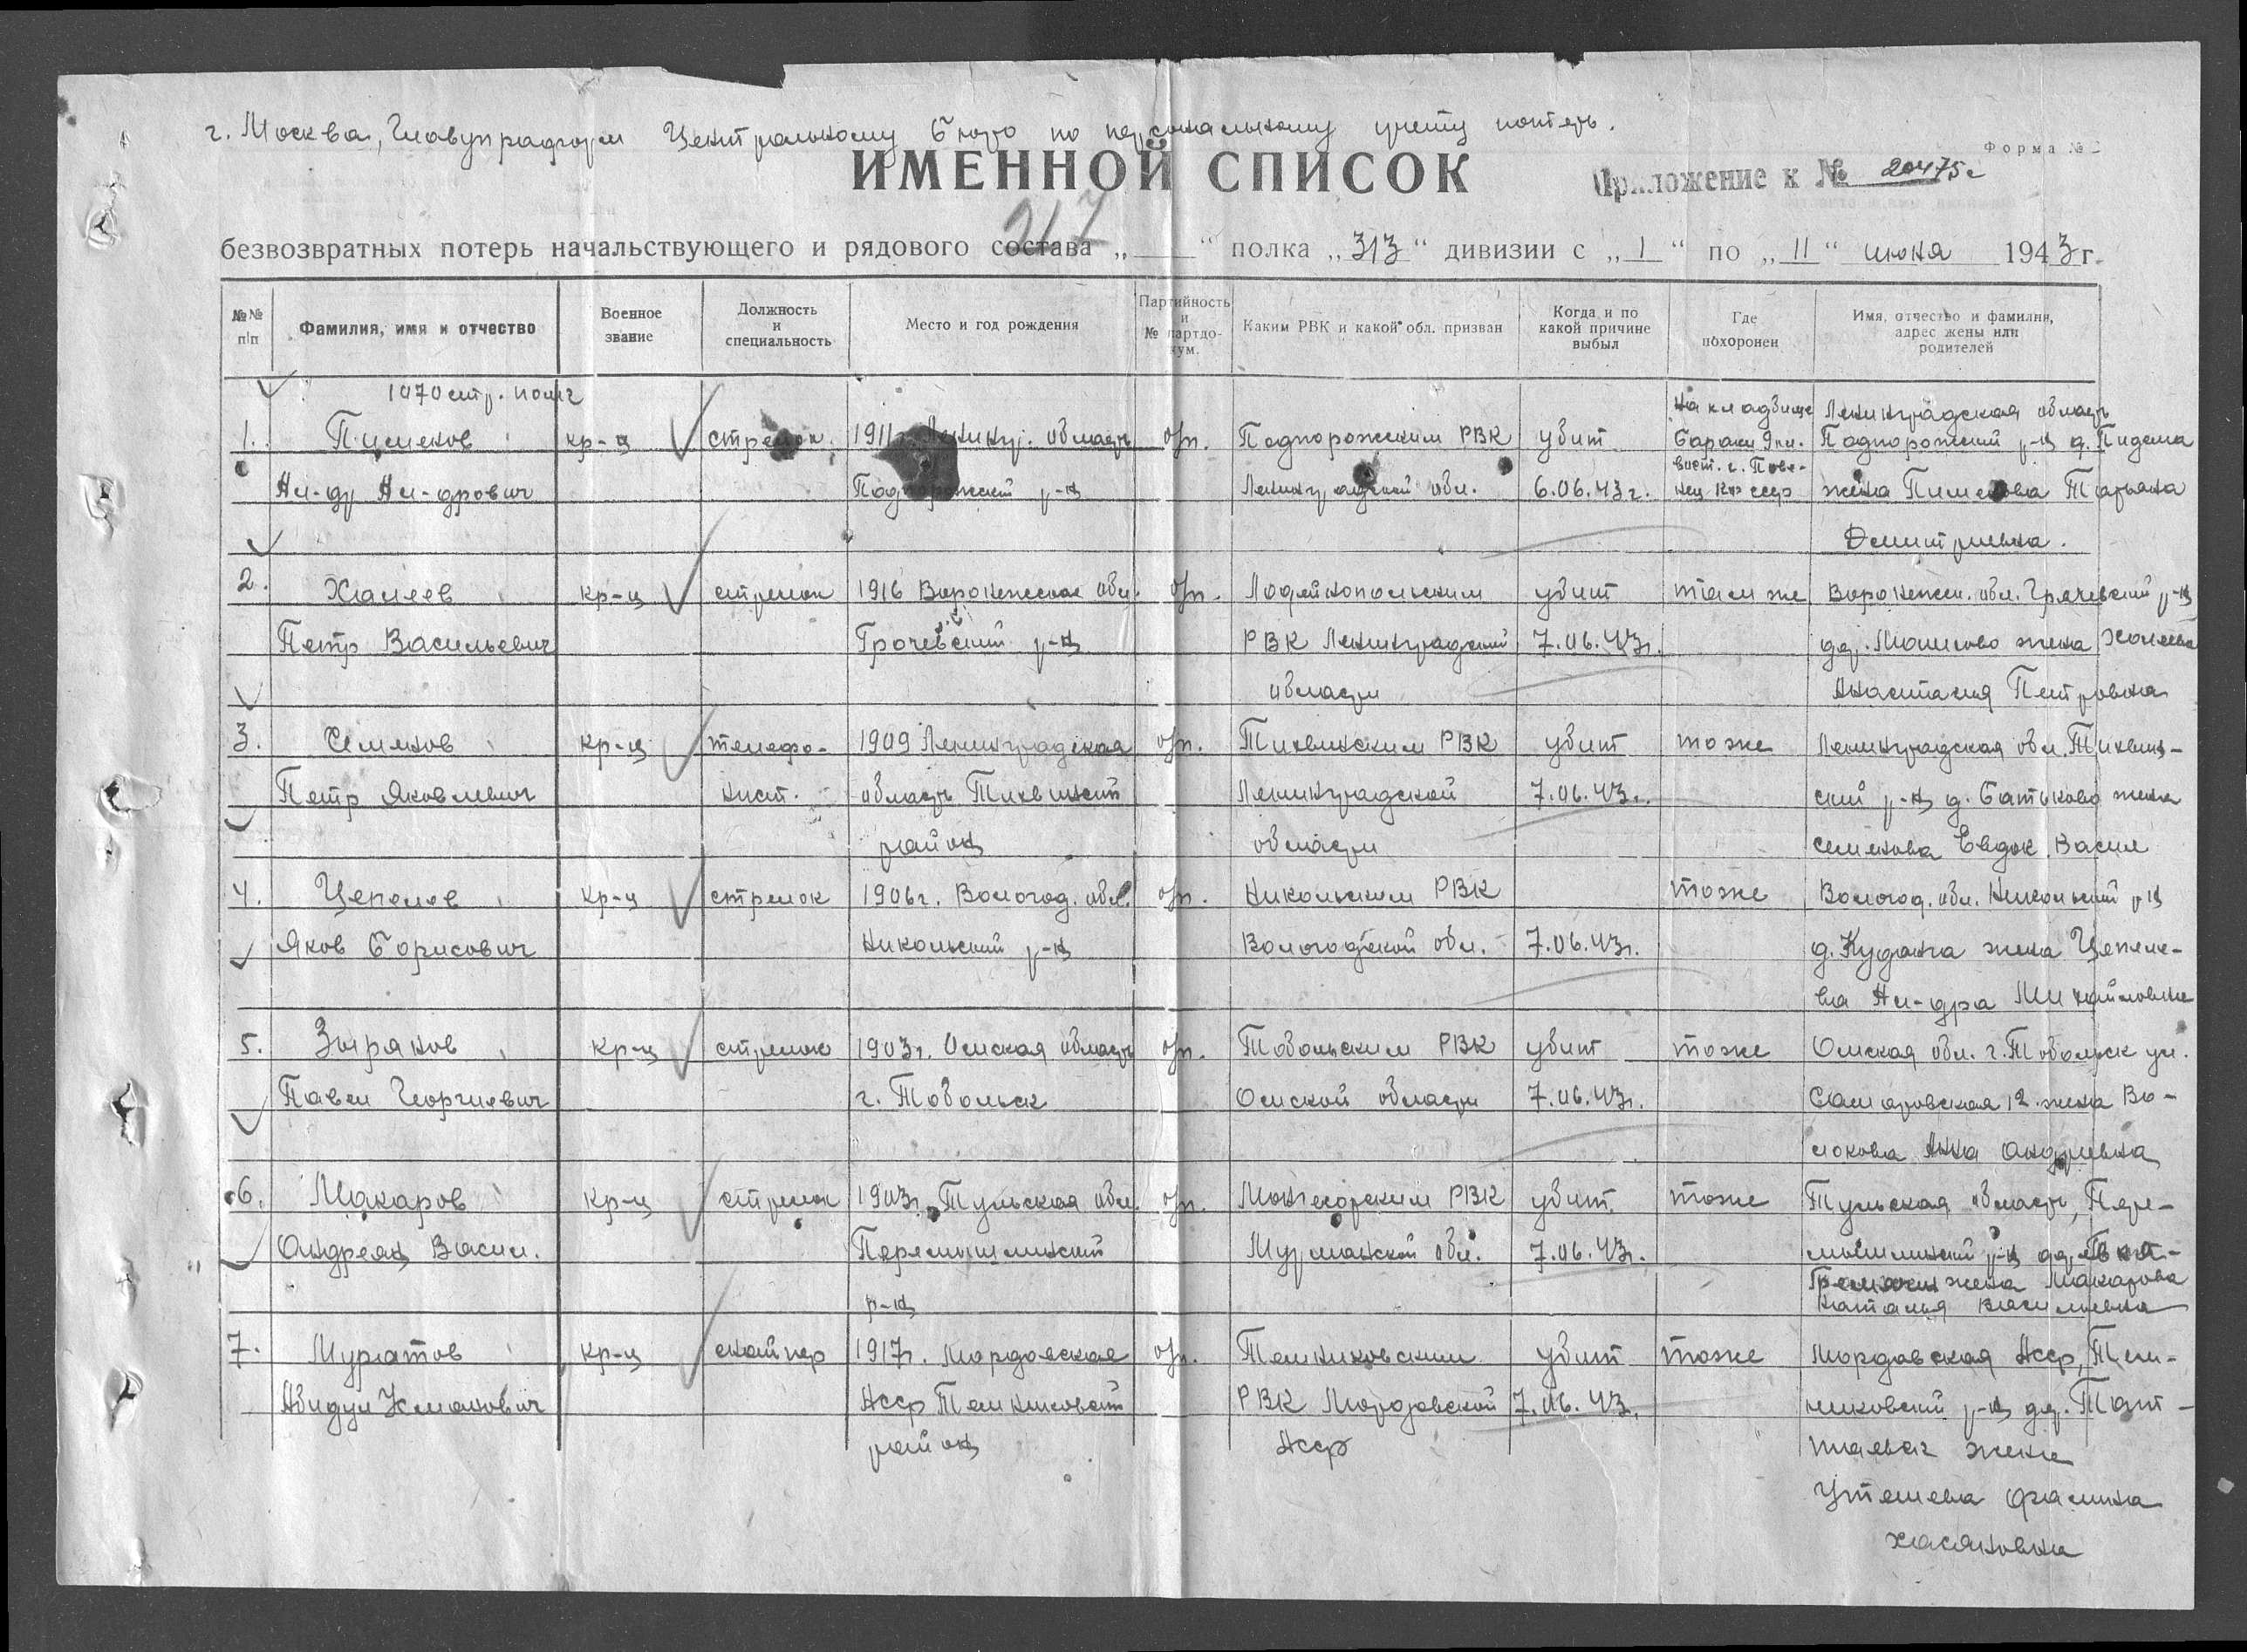 г. Москва, Главупраформ Центральному бюро по персональному учету потерь.
Форма №
ИМЕННОЙ СПИСОК
Приложение к № 20475с
217
безвозвратных потерь начальствующего и рядового состава „ “ полка „313“ дивизии с „1“ по „11“ июня 1943г.
№№ п/п
Фамилия, имя и отчество
Военное звание
Должность и специальность
Место и год рождения
Партийность и № партдокум.
Каким РВК и какой обл. призван
Когда и по какой причине выбыл
Где похоронен
Имя, отчество и фамилия, адрес жены или родителей
1070 стр. полк
1. Пименов кр-ц стрелок 1911г. Ленингр. область б/п. Подпорожским РВК убит На кладбище Бараки Ленинградская область
Ал-др Ал-дрович Подпорожский р-н Ленинградской обл. 6.06.43г. вист. г. Пове- нец КФССР Подпорожский р-н д. Пидема
жена Пименова Татьяна
Дмитриевна.
2. Халеев кр-ц стрелок 1916 Воронежская обл. б/п. Лодейнопольским убит там же Воронежск. обл. Грачевский р-н
Петр Васильевич Грачевский р-н РВК Ленинградской 7.06.43г. жена Халеева
области Анастасия Петровна
3. Семенов кр-ц телефо- 1909 Ленинградская б/п. Тихвинским РВК убит тоже Ленинградская обл. Тихвин-
Петр Яковлевич нист. область Тихвинский Ленинградской 7.06.43г. ский р-н д. Батьково жена
район области Семенова Евдок. Васил
4. Цепелев кр-ц стрелок 1906г. Вологод. обл. б/п. Никольским РВК тоже Вологод. обл. Никольский р-н
Яков Борисович Никольский р-н Вологодской обл. 7.06.43г. д. Куданга жена Цепеле-
ва Ал-дра Михайловна
5. Зырянов кр-ц стрелок 1903г. Омская область б/п. Тобольским РВК убит тоже Омская обл. г. Тобольск ул.
Павел Георгиевич г. Тобольск Омской области 7.06.43г. Самаровская 12. жена Во-
локова Анна Андреевна
6. Макаров кр-ц стрелок 1903г. Тульская обл. б/п. Мончегорским РВК убит. тоже Тульская область, Пере-
Андреян Васил. Перемышльский Мурманской обл. 7.06.43г. мышльский р-н
р-н жена Макарова
Наталья Васильевна
7. Муратов кр-ц снайпер 1917г. Мордовская б/п. Темниковским убит тоже Мордовская АССР, Тем-
Абидул Усманович АССР Темниковский РВК Мордовской 7.06.43. никовский р-н
район АССР жена
Утешева Фамина
Хасяновна